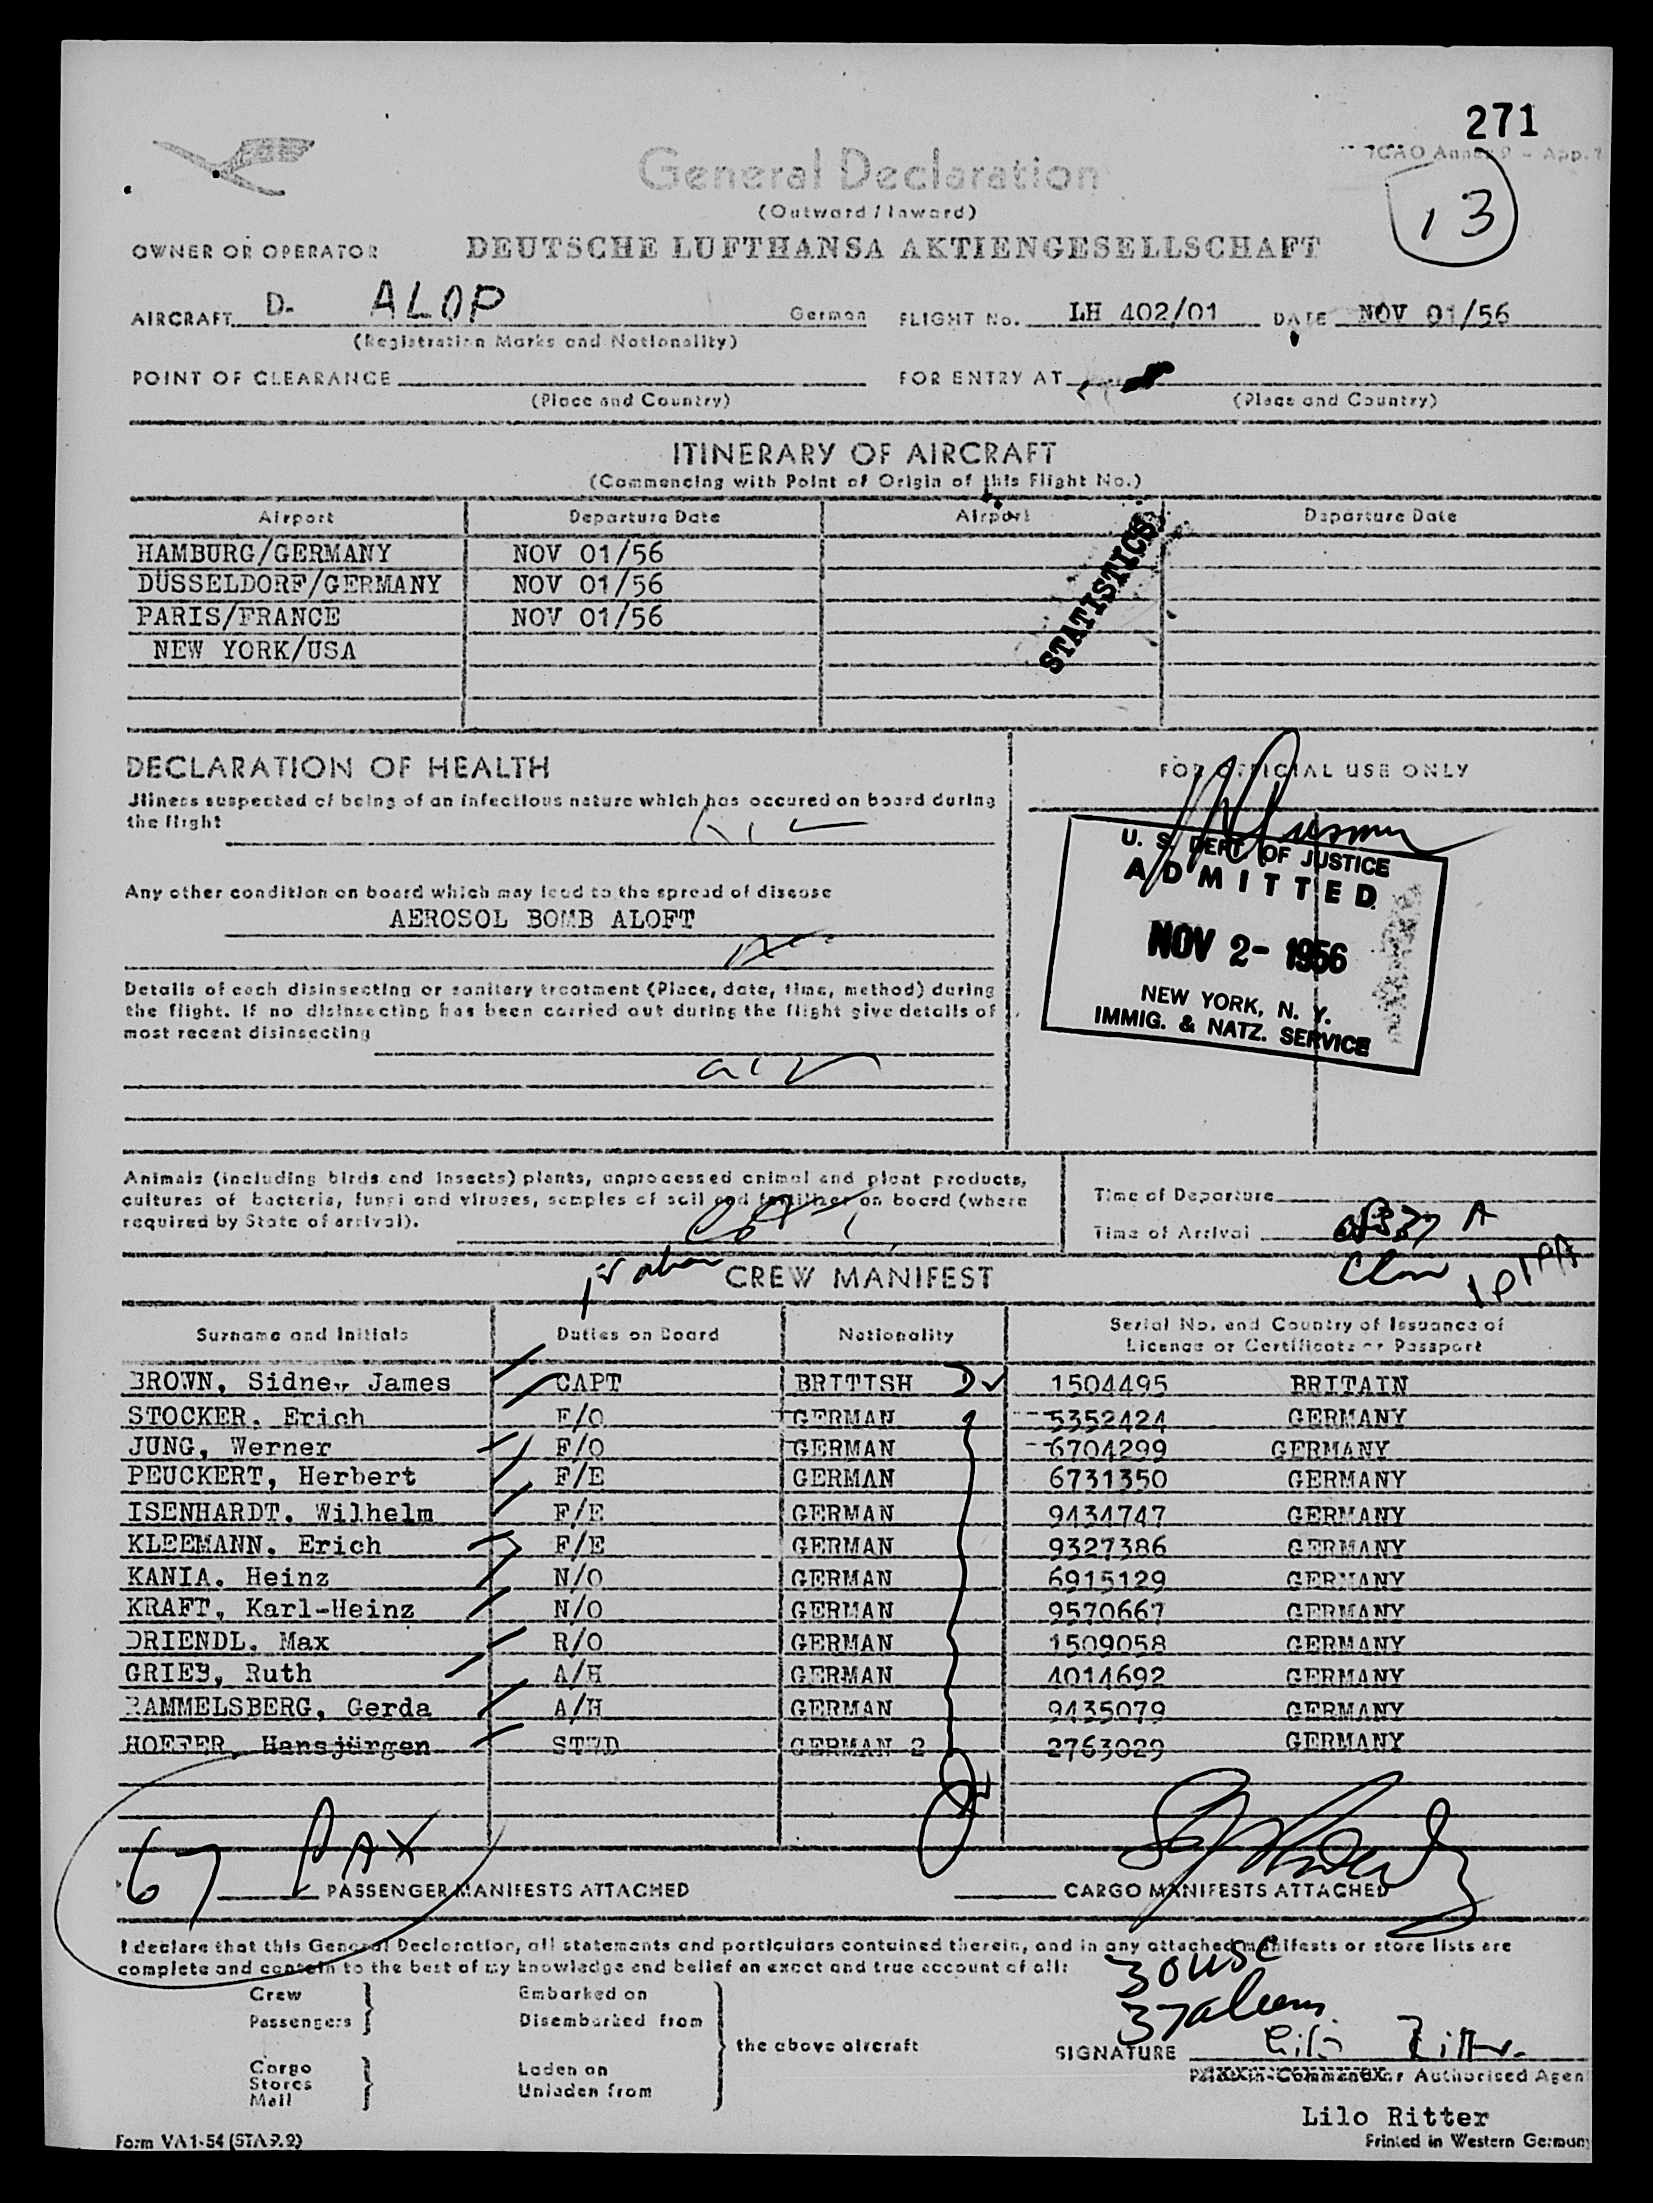 271
ICAO Annex 9 - App. 1
13
General Declaration
(Outward / Inward)
OWNER OR OPERATOR DEUTSCHE LUFTHANSA AKTIENGESELLSCHAFT
AIRCRAFT D- ALOP German FLIGHT No. LH 402/01 DATE NOV 01/56
(Registration Marks and Nationality)
POINT OF CLEARANCE FOR ENTRY AT
(Place and Country) (Place and Country)
ITINERARY OF AIRCRAFT
(Commencing with Point of Origin of this Flight No.)
Airport Departure Date Airport Departure Date
HAMBURG/GERMANY NOV 01/56
DÜSSELDORF/GERMANY NOV 01/56
PARIS/FRANCE NOV 01/56
NEW YORK/USA
STATISTICS
DECLARATION OF HEALTH
FOR OFFICIAL USE ONLY
Illness suspected of being of an infectious nature which has occured on board during
the flight
U. S. DEPT OF JUSTICE
ADMITTED
NOV 2- 1956
NEW YORK, N. Y.
IMMIG. & NATZ. SERVICE
Any other condition on board which may lead to the spread of disease
AEROSOL BOMB ALOFT
Details of each disinsecting or sanitary treatment (Place, date, time, method) during
the flight. If no disinsecting has been carried out during the flight give details of
most recent disinsecting
Animals (including birds and insects) plants, unprocessed animal and plant products,
cultures of bacteria, fungi and viruses, samples of soil and fertilizer on board (where
required by State of arrival).
Time of Departure
Time of Arrival
CREW MANIFEST
Surname and Initials Duties on Board Nationality Serial No. and Country of Issuance of
Licence or Certificate or Passport
BROWN, Sidney James CAPT BRITISH 1504495 BRITAIN
STOCKER, Erich F/O GERMAN 5352424 GERMANY
JUNG, Werner F/O GERMAN 6704299 GERMANY
PEUCKERT, Herbert F/E GERMAN 6731350 GERMANY
ISENHARDT, Wilhelm F/E GERMAN 9434747 GERMANY
KLEEMANN, Erich F/E GERMAN 9327386 GERMANY
KANIA, Heinz N/O GERMAN 6915129 GERMANY
KRAFT, Karl-Heinz N/O GERMAN 9570667 GERMANY
DRIENDL, Max R/O GERMAN 1509058 GERMANY
GRIEB, Ruth A/H GERMAN 4014692 GERMANY
RAMMELSBERG, Gerda A/H GERMAN 9435079 GERMANY
HOEFER, Hansjürgen STWD GERMAN 2 2763029 GERMANY
67 PAX
PASSENGER MANIFESTS ATTACHED CARGO MANIFESTS ATTACHED
I declare that this General Declaration, all statements and particulars contained therein, and in any attached manifests or store lists are
complete and contain to the best of my knowledge and belief an exact and true account of all:
30 USC
37 aliens
Crew Embarked on
Passengers Disembarked from
the above aircraft
Cargo Laden on
Stores
Mail Unladen from
SIGNATURE Lilo Ritter
Pilot-in-Commander or Authorised Agen
Lilo Ritter
Form VA 1-54 (STA 9.2)
Printed in Western German